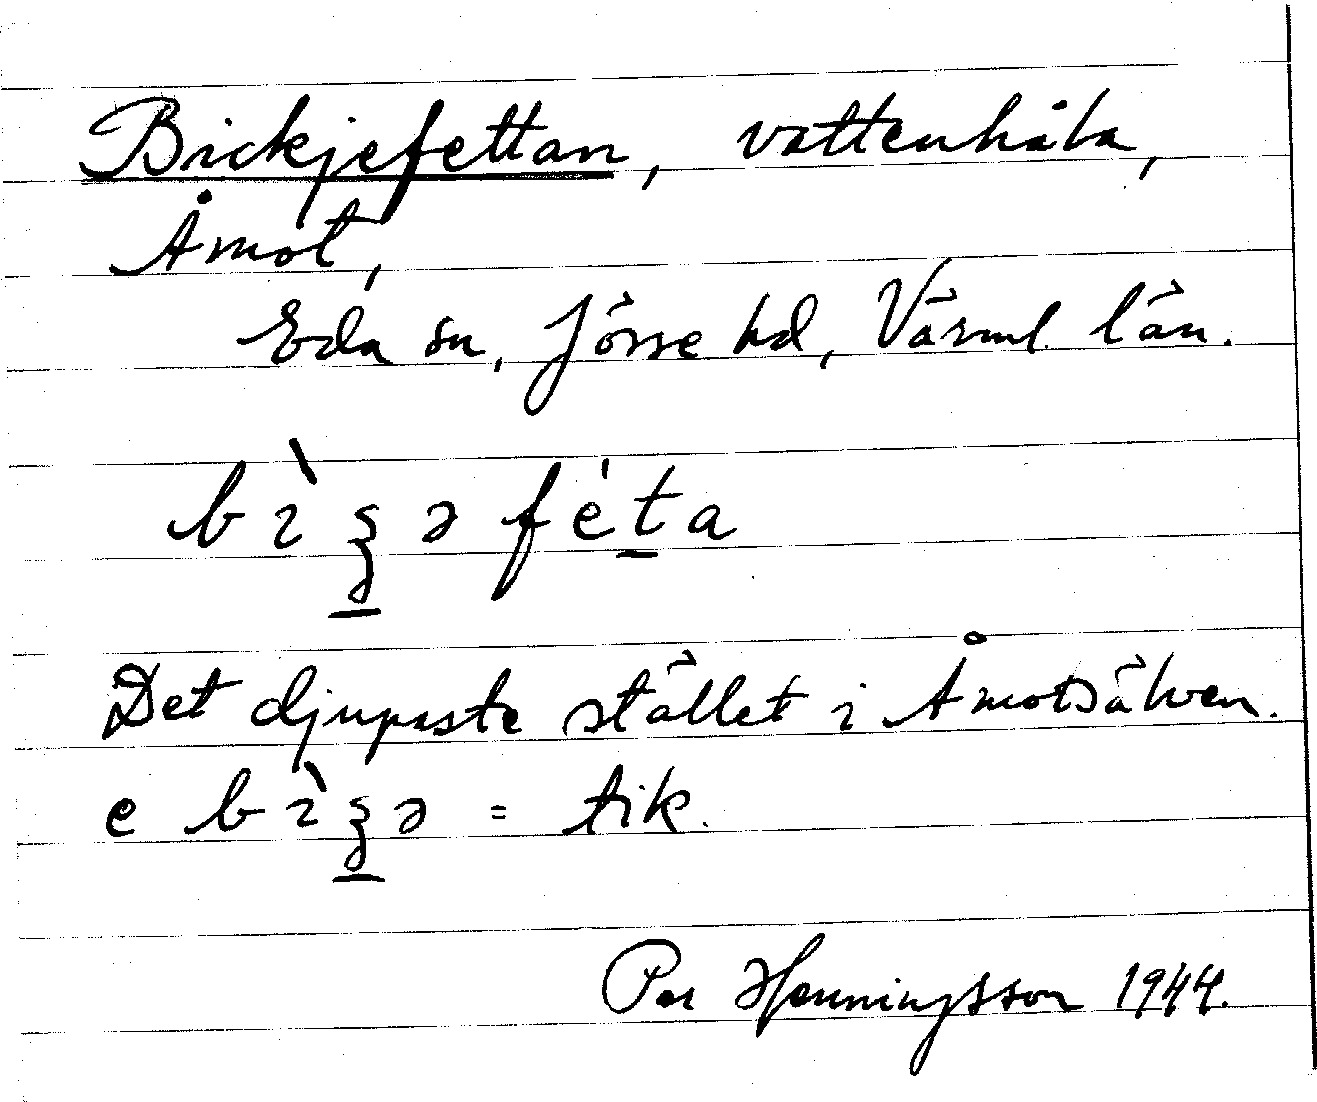 Bickjefettan, vattenhåla,
Åmot,
Eda sn, Jösse hd, Värml. län.
bìʂəféta
Det djupaste stället i Åmotsälven.
e bìʂə = tik.
Per Henningsson 1944.